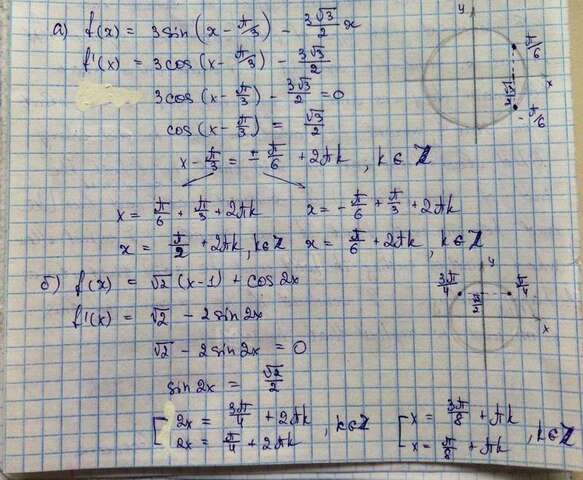 а) f(x) = 3sin(x - π/3) - 3√3/2 x
f'(x) = 3cos(x - π/3) - 3√3/2
3cos(x - π/3) - 3√3/2 = 0
cos(x - π/3) = √3/2
x - π/3 = ± π/6 + 2πk, k∈Z
x = π/6 + π/3 + 2πk x = -π/6 + π/3 + 2πk
x = π/2 + 2πk, k∈Z x = π/6 + 2πk, k∈Z
y
π/6
x
√3/2
-π/6
б) f(x) = √2(x-1) + cos2x
f'(x) = √2 - 2sin2x
√2 - 2sin2x = 0
sin2x = √2/2
[ 2x = 3π/4 + 2πk
2x = π/4 + 2πk , k∈Z
[ x = 3π/8 + πk
x = π/8 + πk , k∈Z
y
3π/4 √2/2 π/4
x